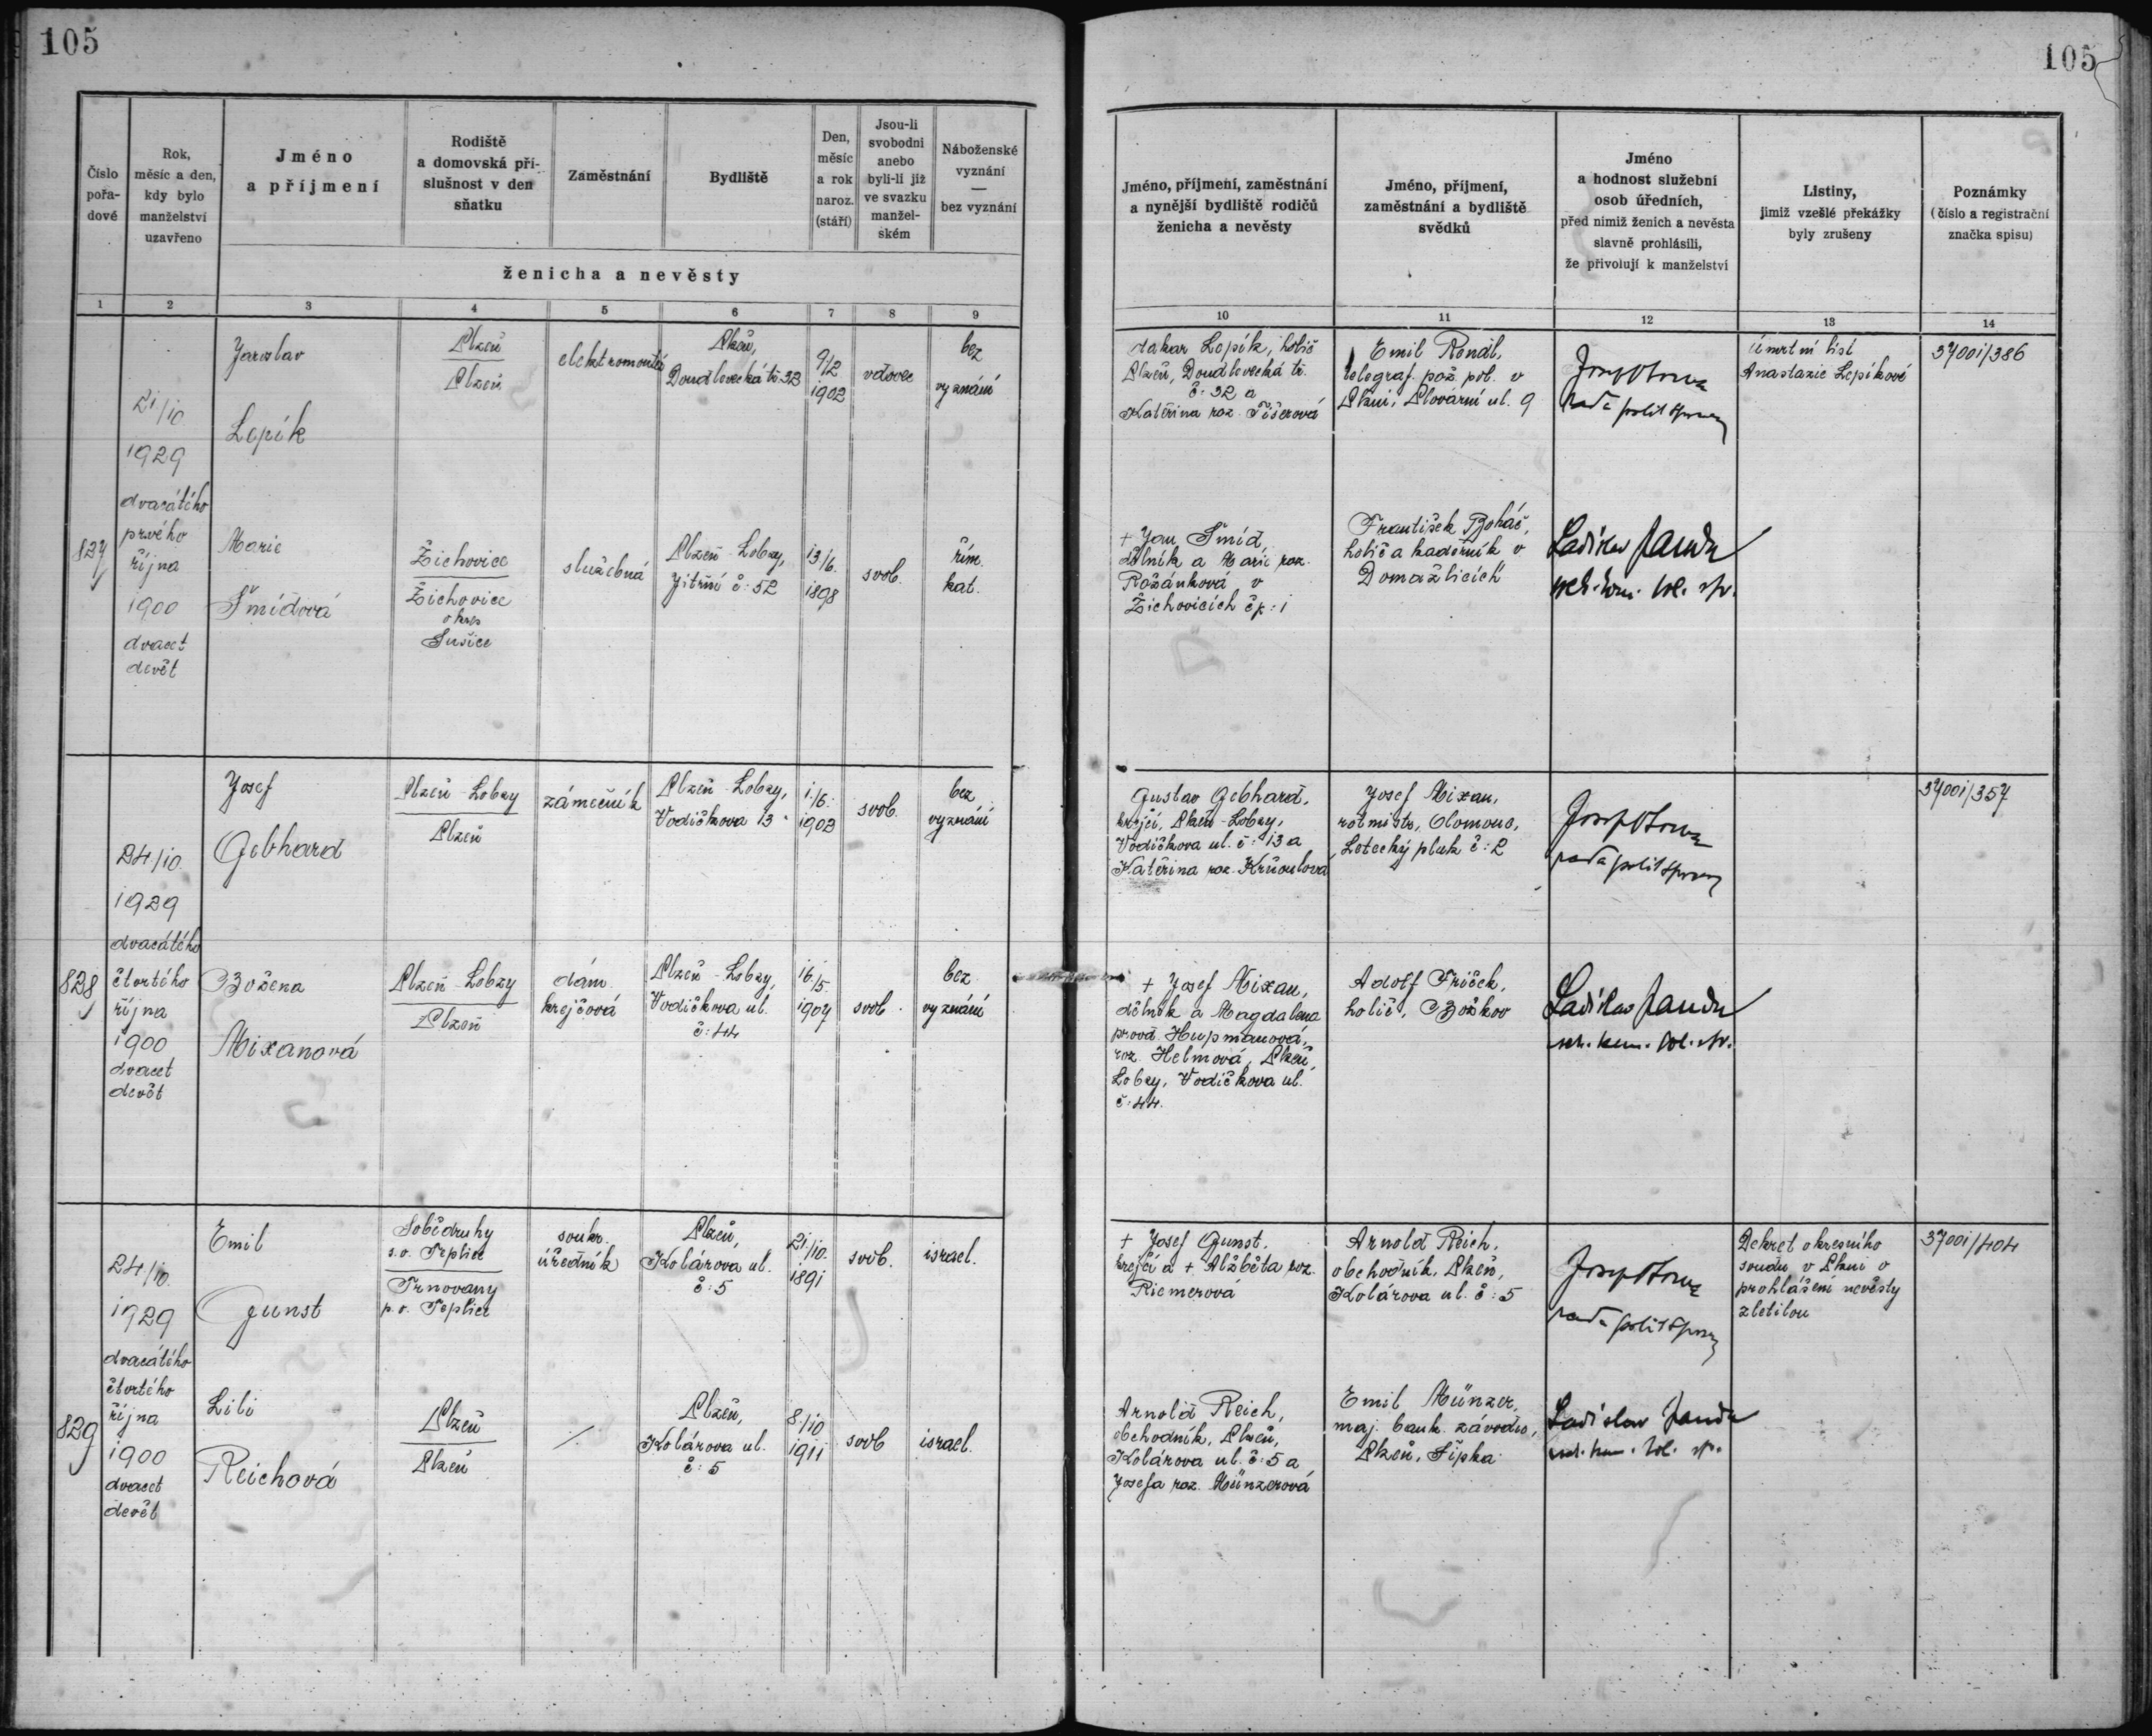 105
105
Číslo
pořa-
dové
Rok,
měsíc a den,
kdy bylo
manželství
uzavřeno
Jméno
a příjmení
Rodiště
a domovská pří-
slušnost v den
sňatku
Zaměstnání
Bydliště
Den,
měsíc
a rok
naroz.
(stáří)
Jsou-li
svobodni
anebo
byli-li již
ve svazku
manžel-
ském
Náboženské
vyznání
—
bez vyznání
ženicha a nevěsty
1 2 3 4 5 6 7 8 9
Jméno, příjmení, zaměstnání
a nynější bydliště rodičů
ženicha a nevěsty
Jméno, příjmení,
zaměstnání a bydliště
svědků
Jméno
a hodnost služební
osob úředních,
před nimiž ženich a nevěsta
slavně prohlásili,
že přivolují k manželství
Listiny,
jimiž vzešlé překážky
byly zrušeny
Poznámky
(číslo a registrační
značka spisu)
10 11 12 13 14
827
21/10
1929
dvacátého
prvého
října
1900
dvacet
devět
Jaroslav
Lepík
Plzeň
Plzeň
elektromontér
Plzeň,
Doudlevecká tř. 32
9/2
1902
vdovec
bez
vyznání
Marie
Šmídová
Žichovice
Žichovice
okres
Sušice
služebná
Plzeň-Lobzy,
Jitřní č: 52
13./6.
1898
svob.
řím.
kat.
Lepík, holič
Plzeň, Doudlevecká tř.
č: 32 a
Kateřina roz. Fišerová
Emil Renál,
telegraf. pož. pol. v
Plzni, Plovární ul. 9
rada polit správy
Úmrtní list
Anastazie Lepíkové
3700i/386
+ Jan Šmíd,
dělník a Marie roz.
Rožánková v
Žichovicích čp: 1
František Boháč,
holič a kadeřník v
Domažlicích
Ladislav Janda
828
24/10
1929
dvacátého
čtvrtého
října
1900
dvacet
devět
Josef
Gebhard
Plzeň-Lobzy
Plzeň
zámečník
Plzeň-Lobzy,
Vodičkova 13
1./6.
1903
svob.
bez
vyznání
Božena
Mixanová
Plzeň-Lobzy
Plzeň
dám.
krejčová
Plzeň-Lobzy,
Vodičkova ul.
č: 44
16./5.
1907
svob.
bez
vyznání
Gustav Gebhard,
krejčí, Plzeň-Lobzy,
Vodičkova ul. č: 13 a
Kateřina roz. Krňoulová
Josef Mixan,
rotmistr, Olomouc,
Letecký pluk č: 2
rada polit správy
3700i/357
+ Josef Mixan,
dělník a Magdalena
provd. Hupmanová,
roz. Helmová, Plzeň,
Lobzy, Vodičkova ul.
č: 44.
Adolf Friček,
holič, Božkov
Ladislav Janda
829
24./10.
1929
dvacátého
čtvrtého
října
1900
dvacet
devět
Emil
Gunst
Sobědruhy
s. o. Teplice
Trnovany
p. o. Teplice
soukr.
úředník
Plzeň,
Kolárova ul.
č: 5
21./10.
1891
svob.
israel.
Lili
Reichová
Plzeň
Plzeň
/
Plzeň,
Kolárova ul.
č: 5
8./10
1911
svob
israel.
+ Josef Gunst,
krejčí a + Alžběta roz.
Riemerová
Arnold Reich,
obchodník, Plzeň,
Kolárova ul. č: 5
rada polit správy
Dekret okresního
soudu v Plzni o
prohlášení nevěsty
zletilou
3700i/404
Arnold Reich,
obchodník, Plzeň,
Kolárova ul. č: 5 a
Josefa roz. Münzerová
Emil Münzer,
maj. bank. závodu,
Plzeň, Šipka
Ladislav Janda